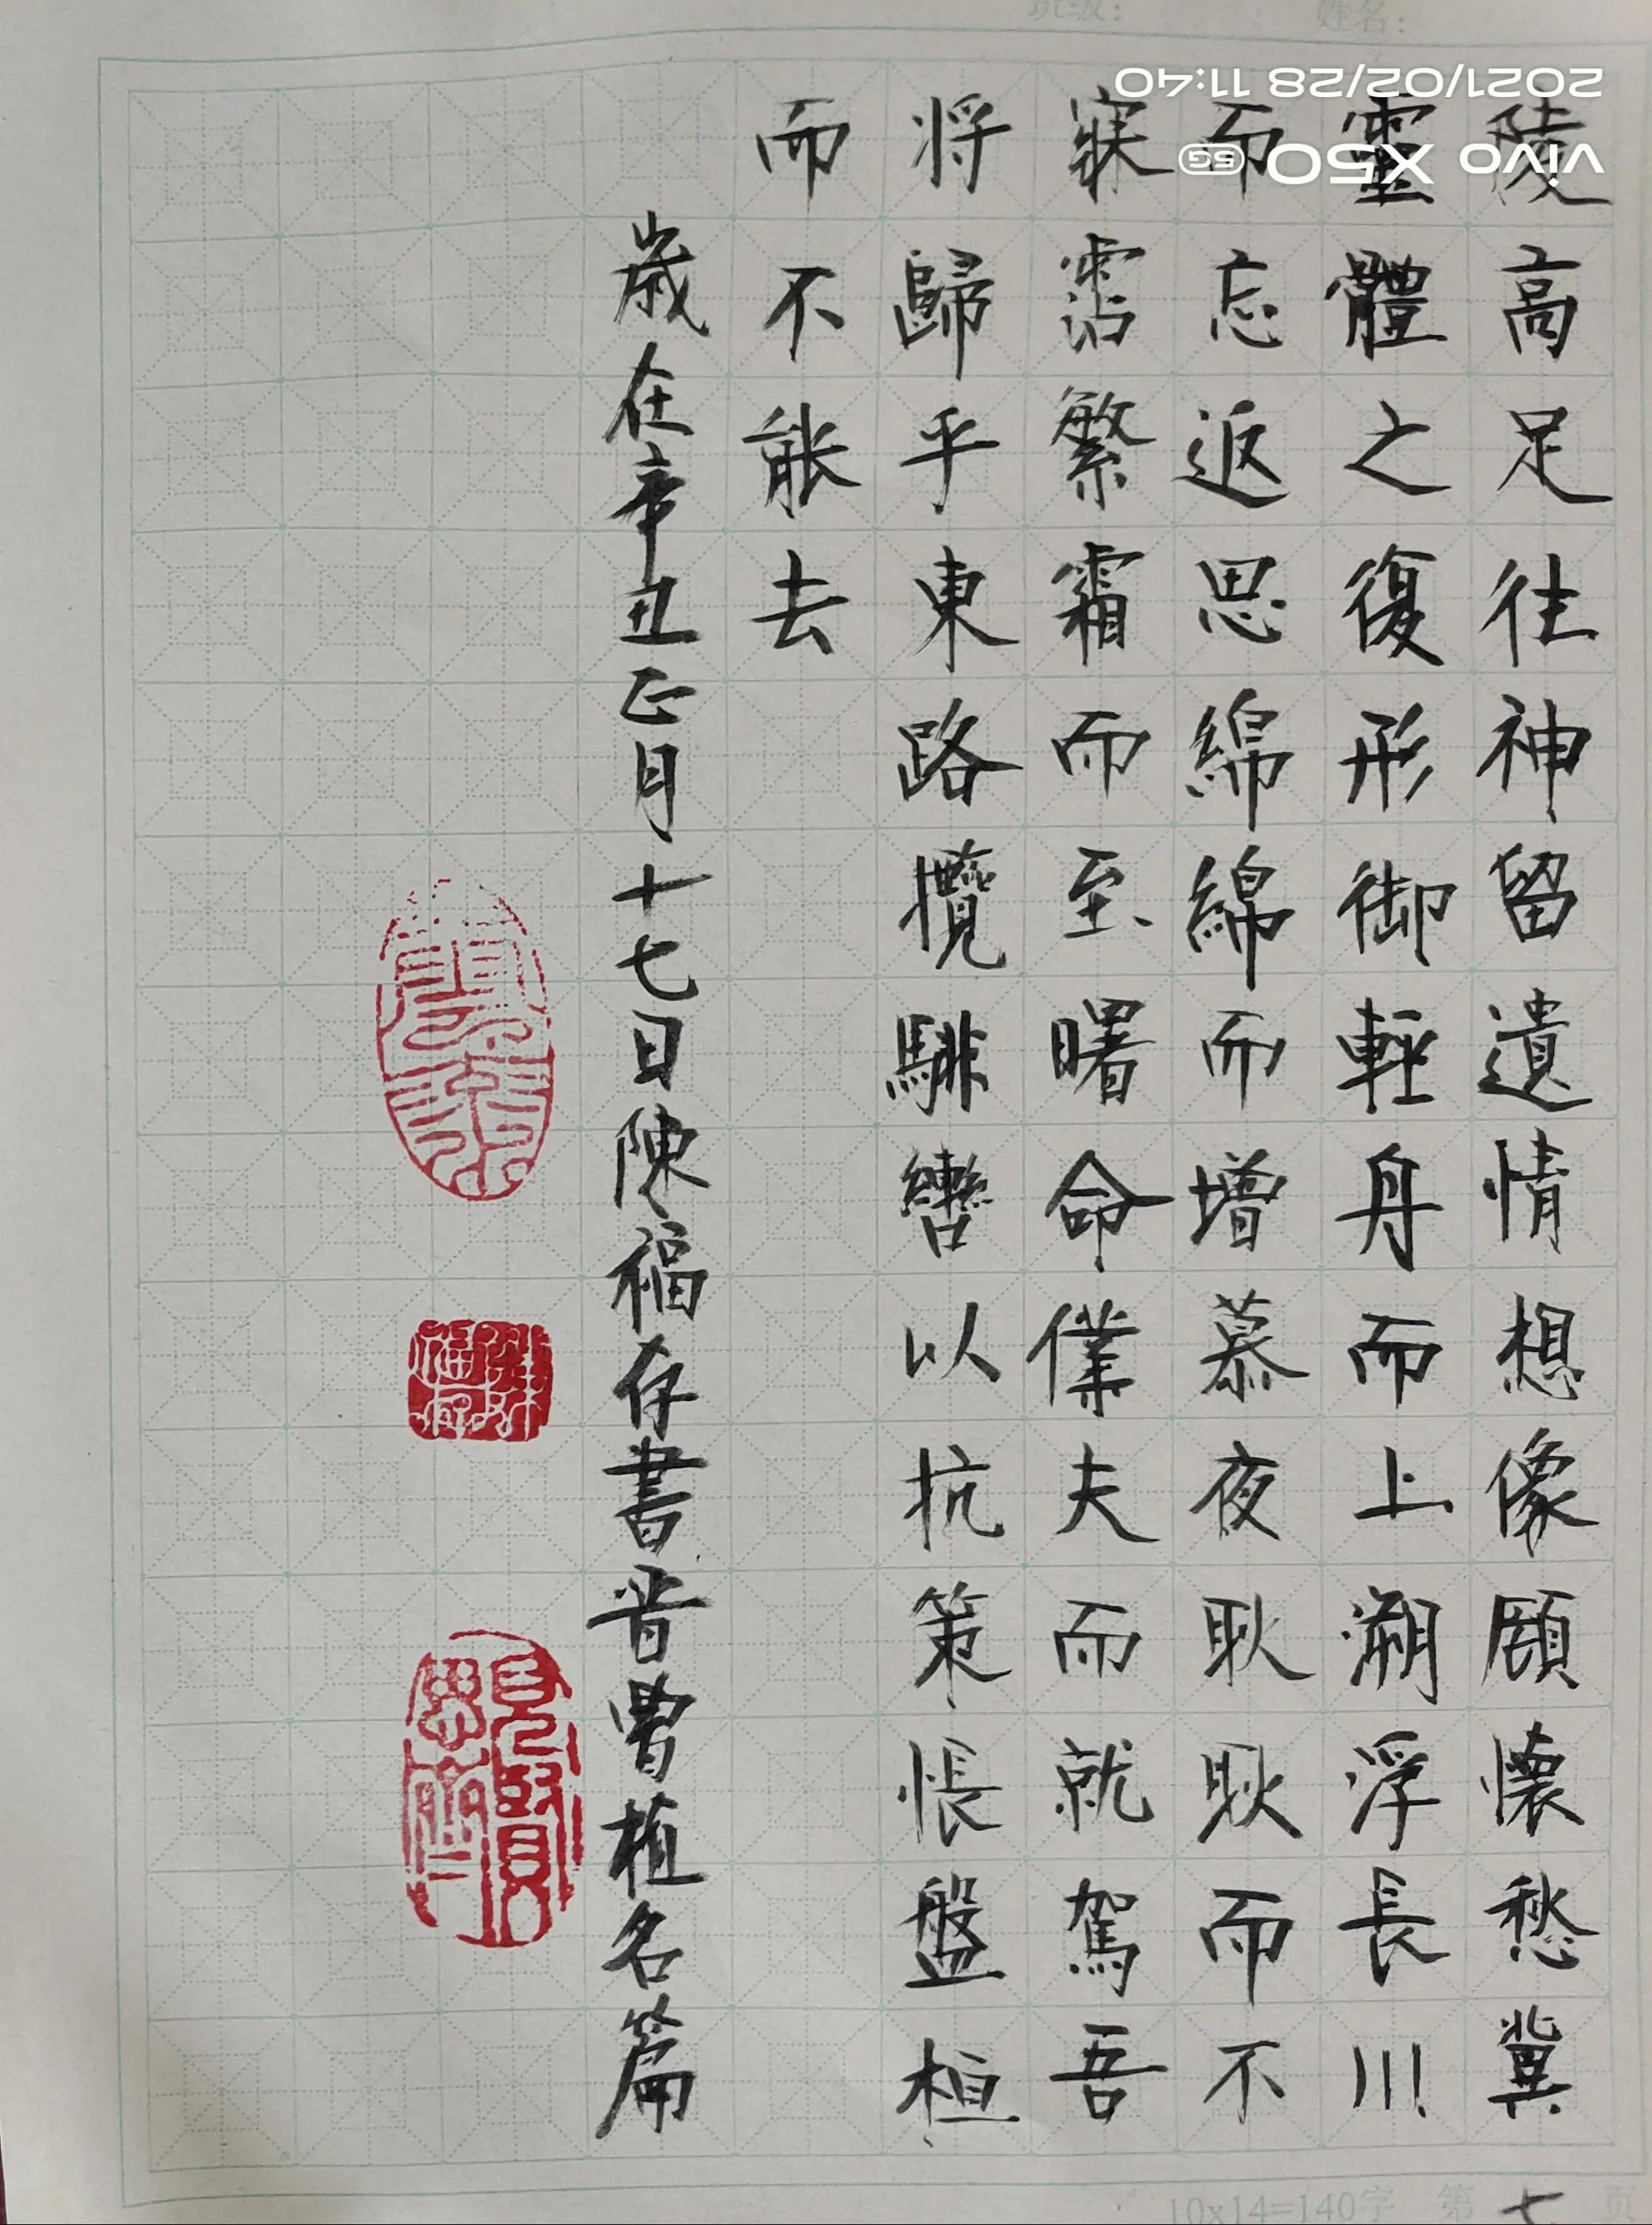 班级：
姓名：
陵高足往神留遺情想像顧懷愁冀
靈體之復形御輕舟而上溯浮長川
而忘返思綿綿而增慕夜耿耿而不
寐霑繁霜而至曙命僕夫而就駕吾
將歸乎東路攬騑轡以抗策悵盤桓
而不能去
歲在辛丑正月十七日陳福存書晉曹植名篇
見賢思齊
10x14=140字 第七页
2021/02/28 11:40
vivo X50 5G